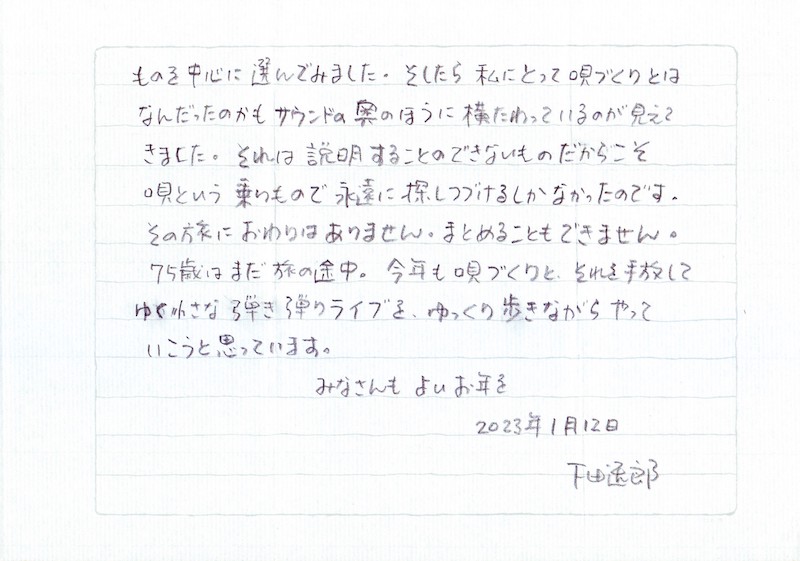 ものを中心に選んでみました。そしたら 私にとって唄づくりとは
なんだったのかも サウンドの奥のほうに横たわっているのが見えて
きました。それは 説明することのできないものだからこそ
唄という乗りもので永遠に探しつづけるしかなかったのです。
その旅におわりはありません。まとめることもできません。
75歳はまだ旅の途中。今年も唄づくりと、それを手放して
ゆく小さな弾き語りライブを、ゆっくり歩きながらやって
いこうと思っています。
みなさんも よいお年を
2023年1月12日
下田逸郎